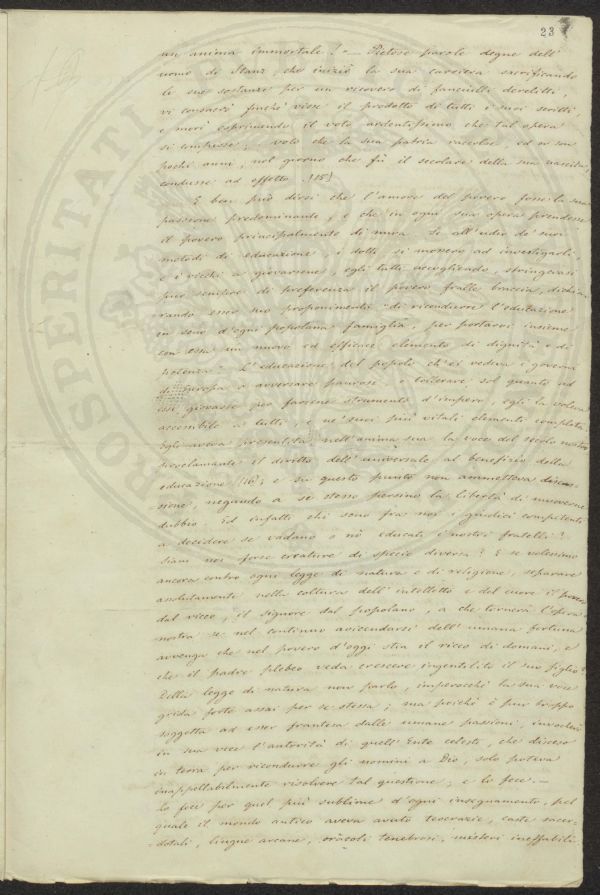 23
un anima immortale! " — Pietose parole degne dell'
uomo di Stanz, che iniziò la sua carriera sacrificando
le sue sostanze per un ricovero di fanciulli derelitti,
vi consacrò finchè visse il prodotto di tutti i suoi scritti,
e morì esprimendo il voto ardentissimo che tal opera
si compisse; voto che la sua patria raccolse, ed or son
pochi anni, nel giorno che fù il secolare della sua nascita
condusse ad effetto. (15)
E ben può dirsi che l'amore del povero fosse la sua
passione predominante, e che in ogni sua opera prendesse
il povero principalmente di mira. Se all'udir de' suoi
metodi di educazione, i dotti si mossero ad investigarli,
e i ricchi a giovarsene, egli tutti accogliendo, stringevasi
pur sempre di preferenza il povero fralle braccia, dichia-
rando esser suo proponimento di ricondurre l'educazione
in seno d'ogni popolana famiglia, per portarvi insieme
con essa un nuovo ed efficace elemento di dignità e di
potenza. L'educazione del popolo ch'ei vedeva i governi
di Europa o avversare paurosi, o tollerare sol quanto ad
essi giovasse per farsene strumento d'impero, egli la voleva
accessibile a tutti, e ne' suoi più vitali elementi completa.
Egli aveva presentita nell'anima sua la voce del secolo nostro
proclamante il diritto dell'universale al benefizio della
educazione (16), e su questo punto non ammetteva discus-
sione, negando a se stesso persino la libertà di muoverne
dubbio. Ed infatti chi sono fra noi i giudici competenti
a decidere se vadano o nò educati i nostri fratelli?
Siam noi forse creature di specie diversa? E se volessimo
ancora contro ogni legge di natura e di religione, separare
assolutamente nella coltura dell'intelletto e del cuore il povero
dal ricco, il signore dal popolano, a che tornerà l'opera
nostra se nel continuo avvicendarsi dell'umana fortuna
avvenga che nel povero d'oggi stia il ricco di domani, e
che il padre plebeo veda crescere ingentilito il suo figlio?
Della legge di natura non parlo, imperocchè la sua voce
grida forte assai per se stessa; ma poichè è pur troppo
soggetta ad esser frantesa dalle umane passioni, invocherò
in sua vece l'autorità di quell'Ente celeste, che disceso
in terra per ricondurre gli uomini a Dio, solo poteva
inappellabilmente risolvere tal questione; e lo fece. —
Lo fece per quel più sublime d'ogni insegnamento, pel
quale il mondo antico aveva avuto teocrazie, caste sacer-
dotali, lingue arcane, oracoli tenebrosi, misteri ineffabili
PROSPERITATI